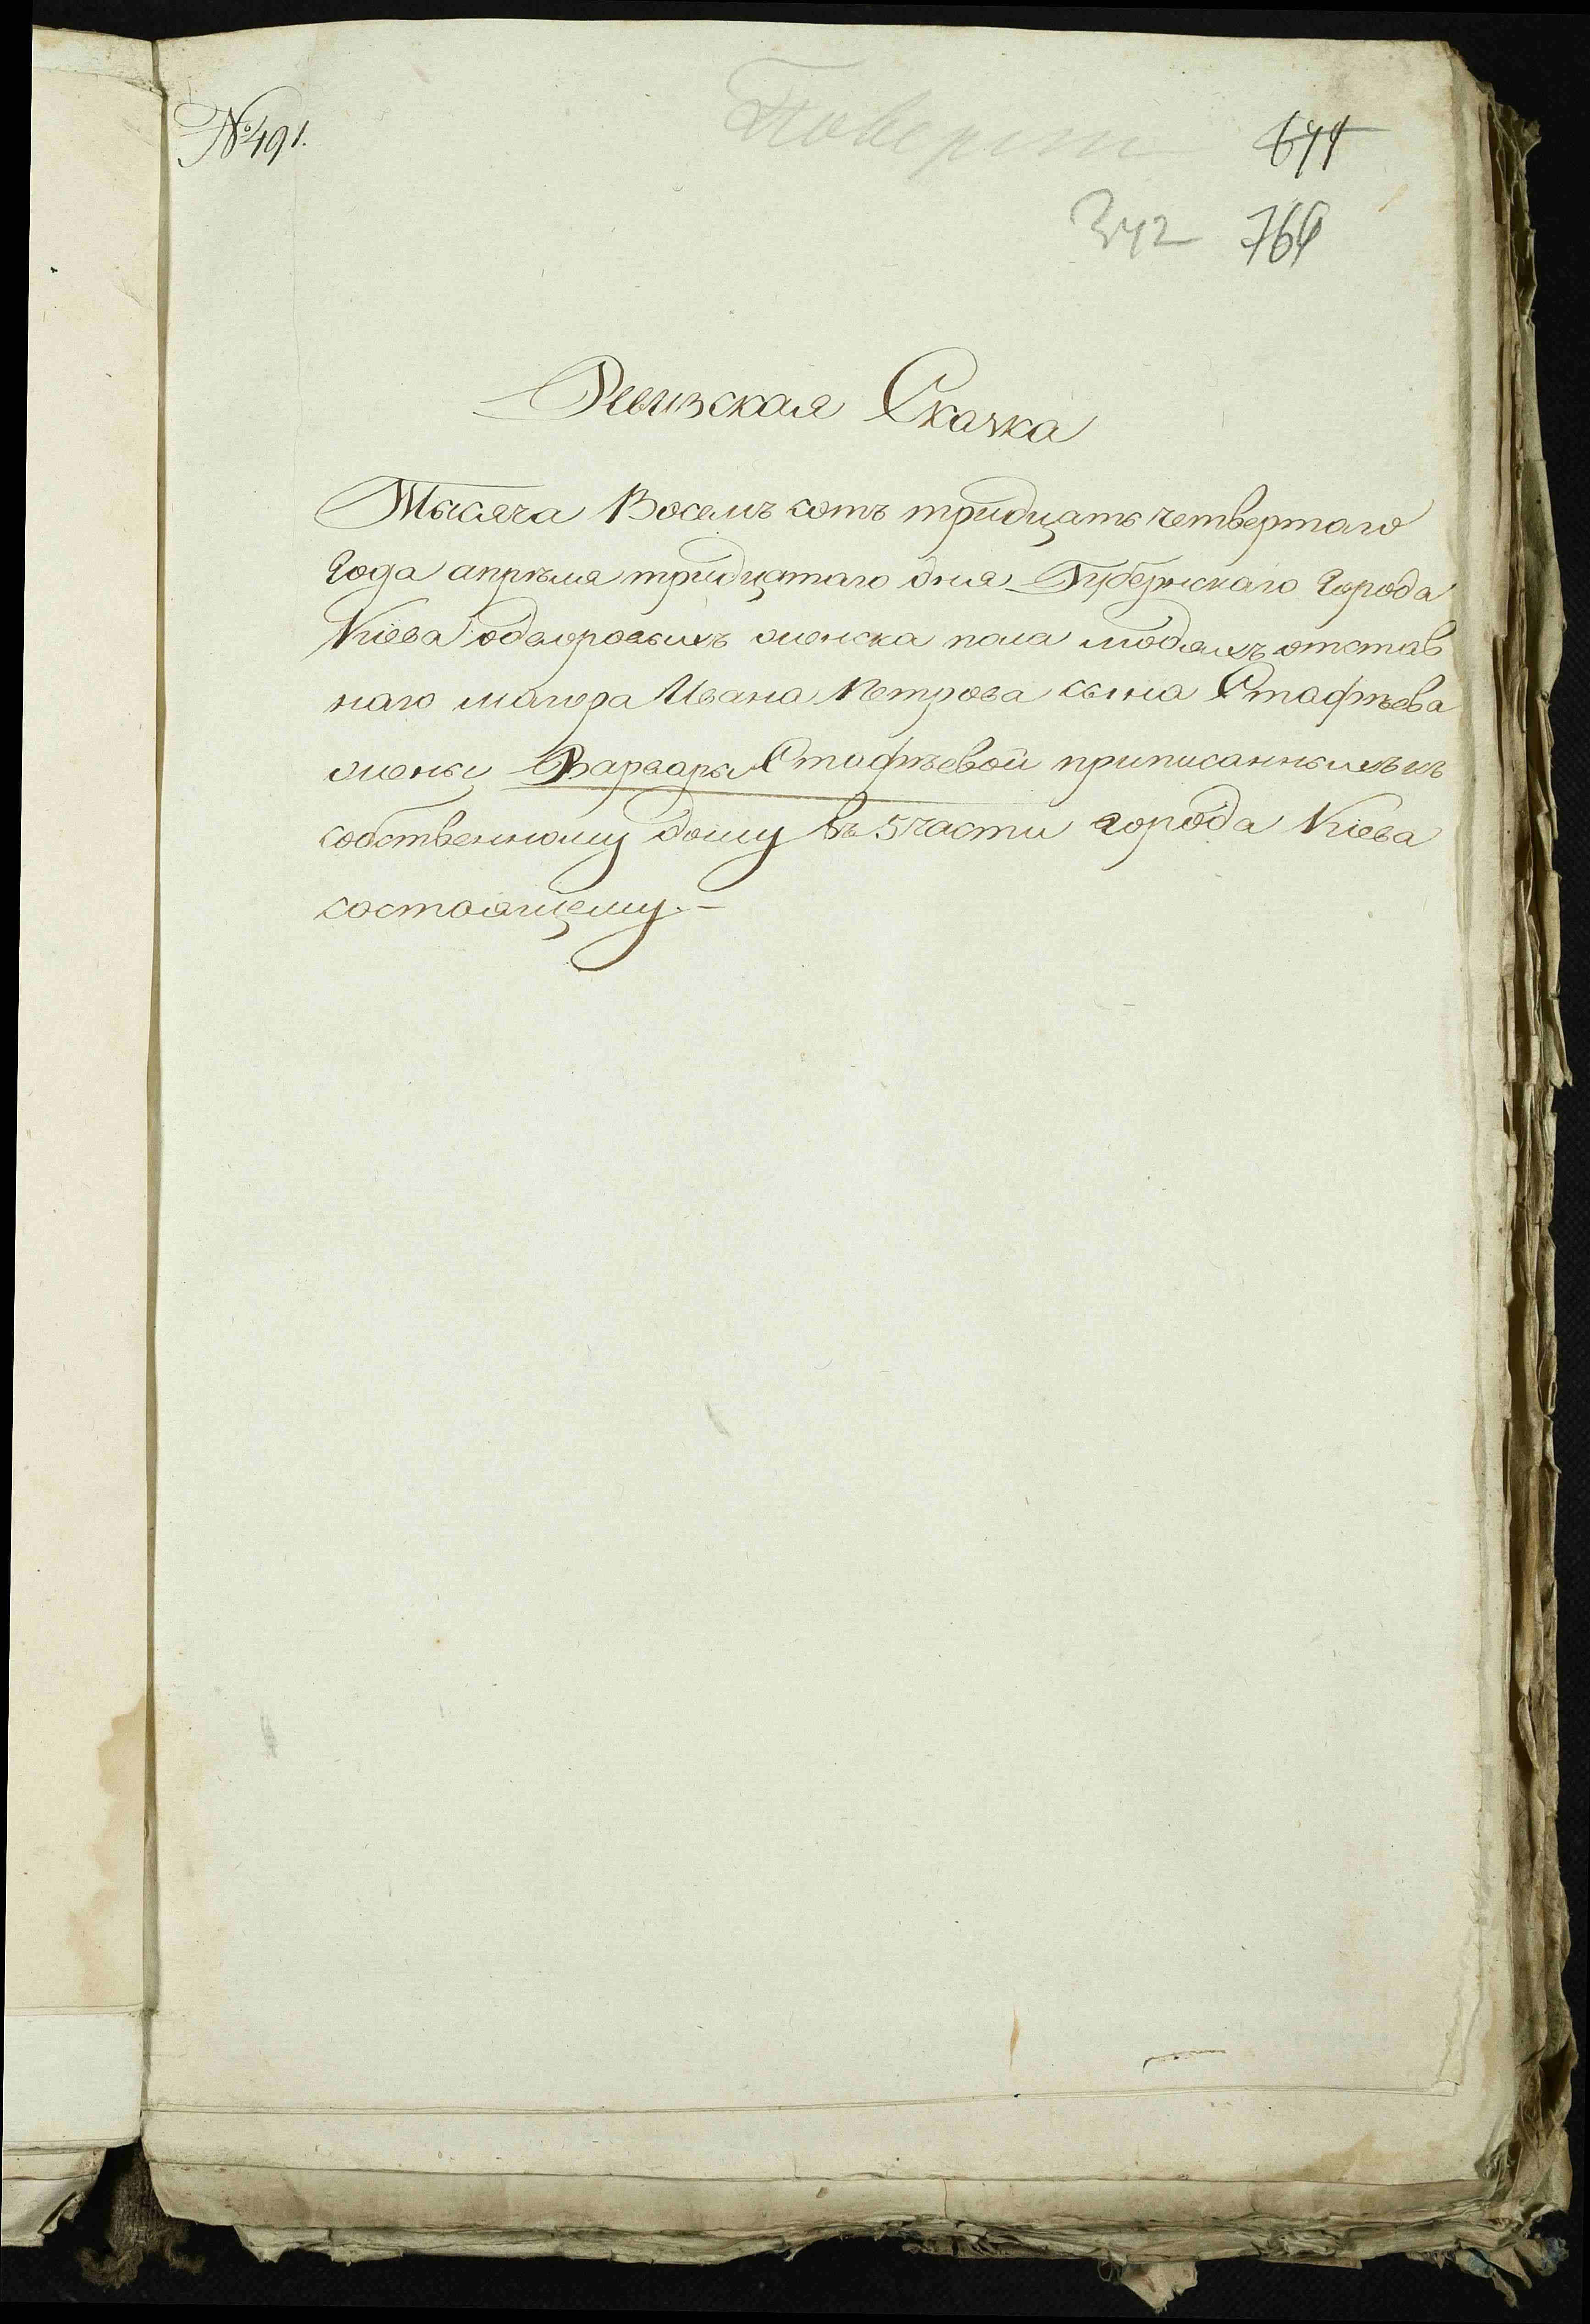 № 491.
Поверит
644
342 769
Ревизская Сказка
Тысяча Восемъ сотъ тридцать четвертаго
Года апреля тридцатаго дня Губернскаго Города
Киева одворовыхъ женска пола людяхъ отстав
наго маиора Ивана Петрова сына Стафѣева
жены Варвары Стафѣевой приписанныхъ къ
собственному дому въ 5 части города Киева
состоящему.-